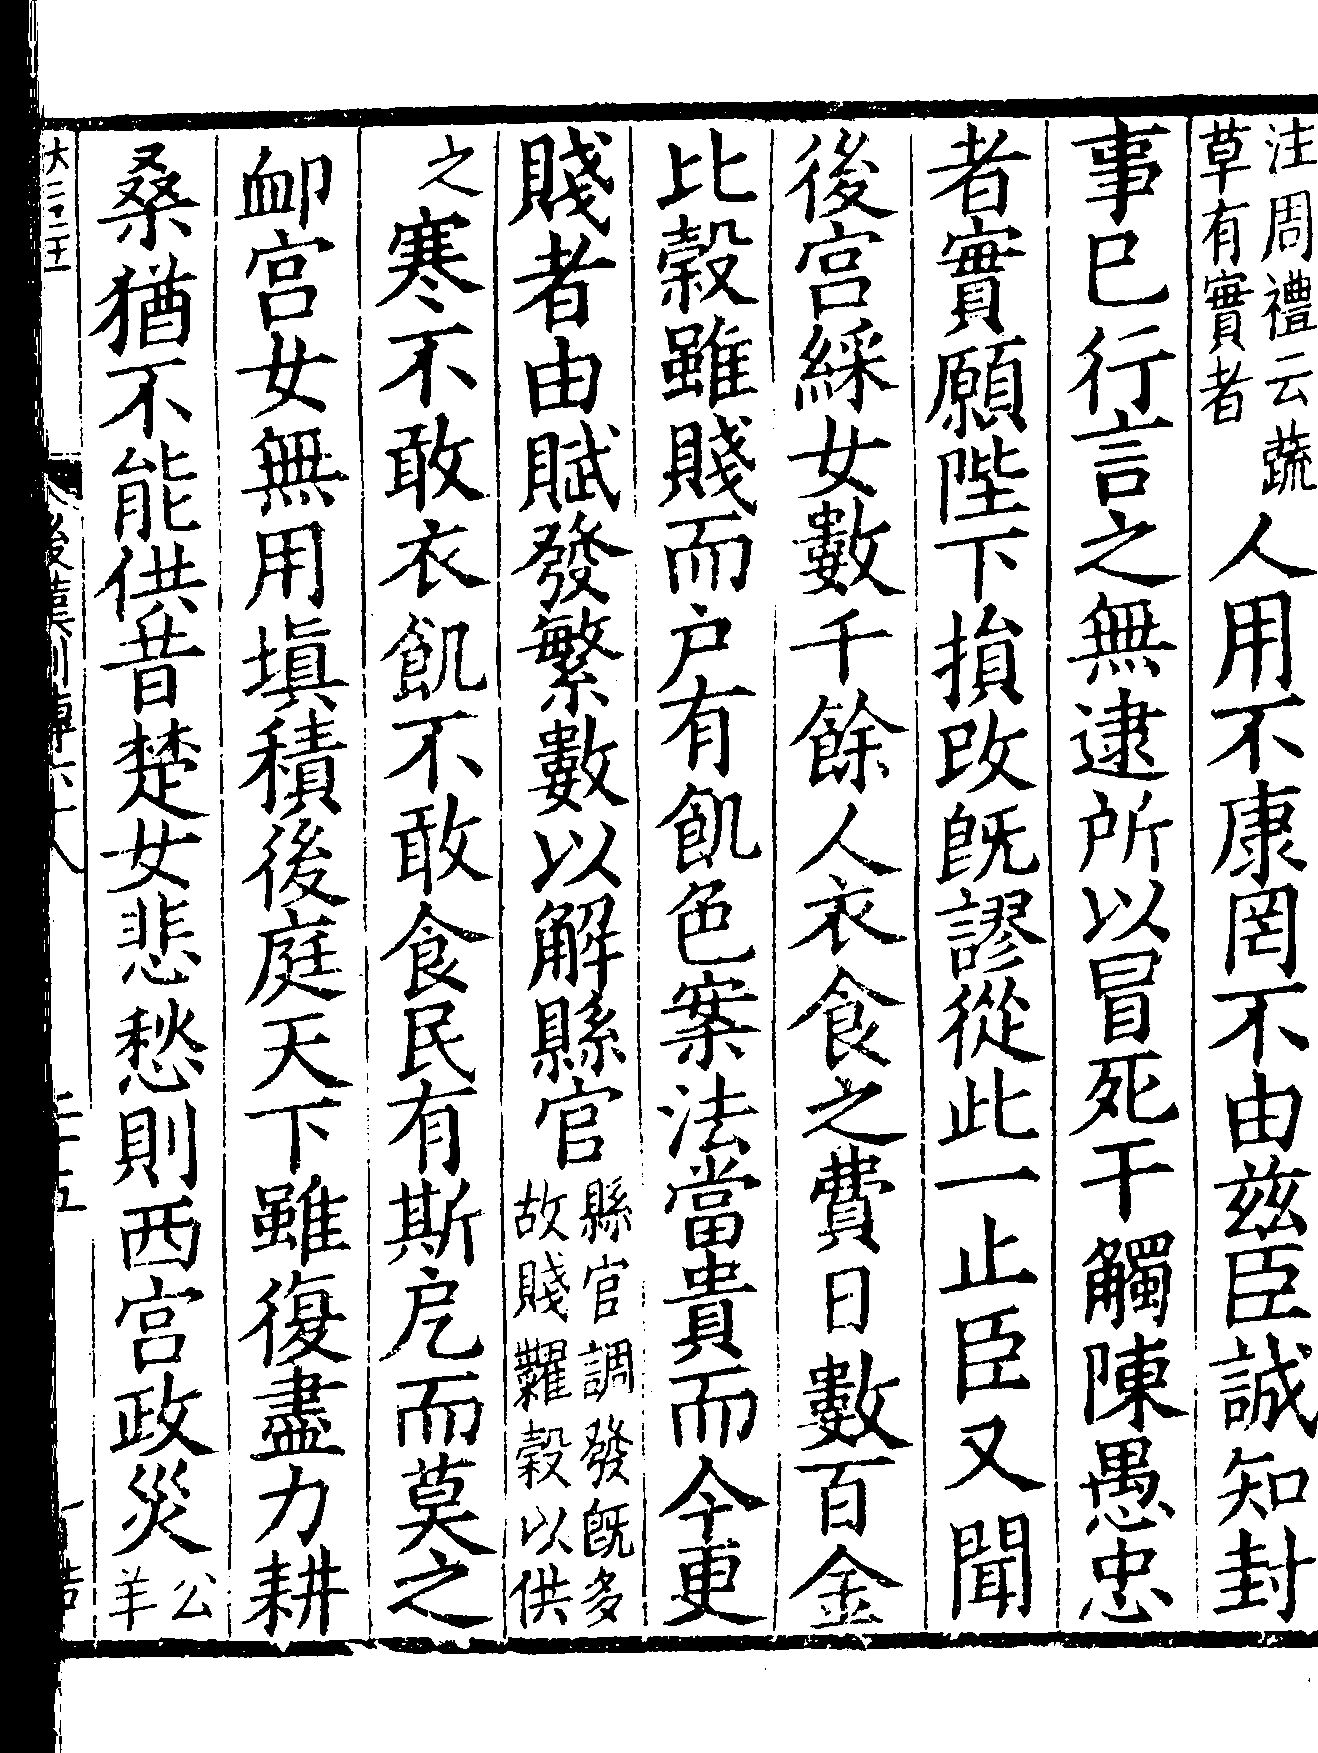 注周禮云蔬草有實者人用不康罔不由兹臣誠知封
事已行言之無逮所以冒死干觸陳愚忠
者實願陛下損改既謬從此一止臣又聞
後宫綵女數千餘人衣食之費日數百金
比穀雖賤而户有飢色案法當貴而今更
賤者由賦發繁數以解縣官縣官調發既多故賤糶穀以供
之寒不敢衣飢不敢食民有斯戹而莫之
卹宫女無用填積後庭天下雖復盡力耕
桑猶不能供昔楚女悲愁則西宫政災公羊
後漢列傳六十八
二十五